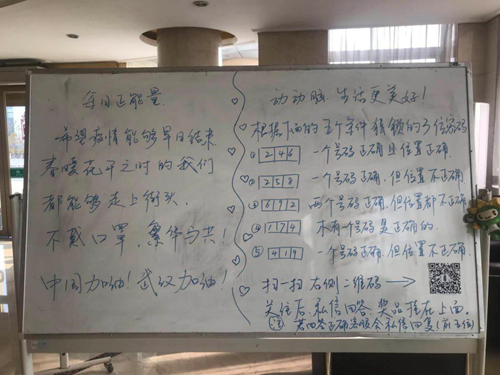 每日正能量
希望疫情能够早日结束
春暖花开之时的我们
都能够走上街头
不戴口罩,繁华与共!
中国加油!武汉加油!
动动脑 生活更美好!
根据下面的五个条件猜锁的3位密码
① 246 一个号码正确且位置正确.
② 258 一个号码正确,但位置不正确
③ 672 两个号码正确,但位置都不正确
④ 174 木有一个号码是正确的.
⑤ 419 一个号码正确,但位置不正确.
扫一扫 右侧二维码 →
关注后,私信回答,奖品挂在上面.